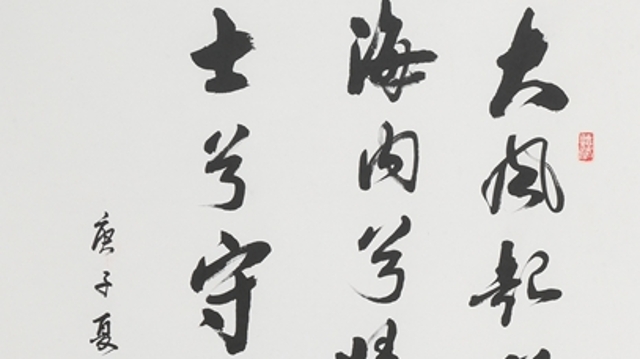 大風起
海内兮
士兮守
庚子夏